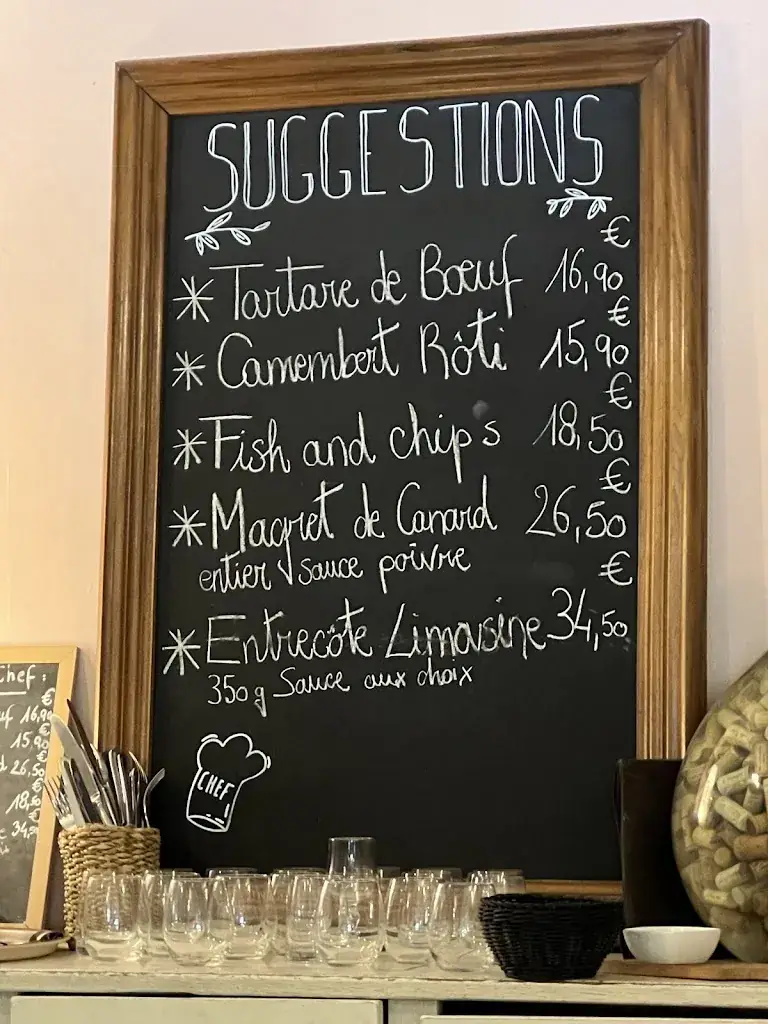 SUGGESTIONS
€
* Tartare de Bœuf 16,90
€
* Camembert Rôti 15,90
€
* Fish and chips 18,50
€
* Magret de Canard 26,50
entier sauce poivre
€
* Entrecôte Limousine 34,50
350g Sauce aux choix
CHEF
Chef :
€
16,90
€
15,90
€
26,50
€
18,50
€
34,50